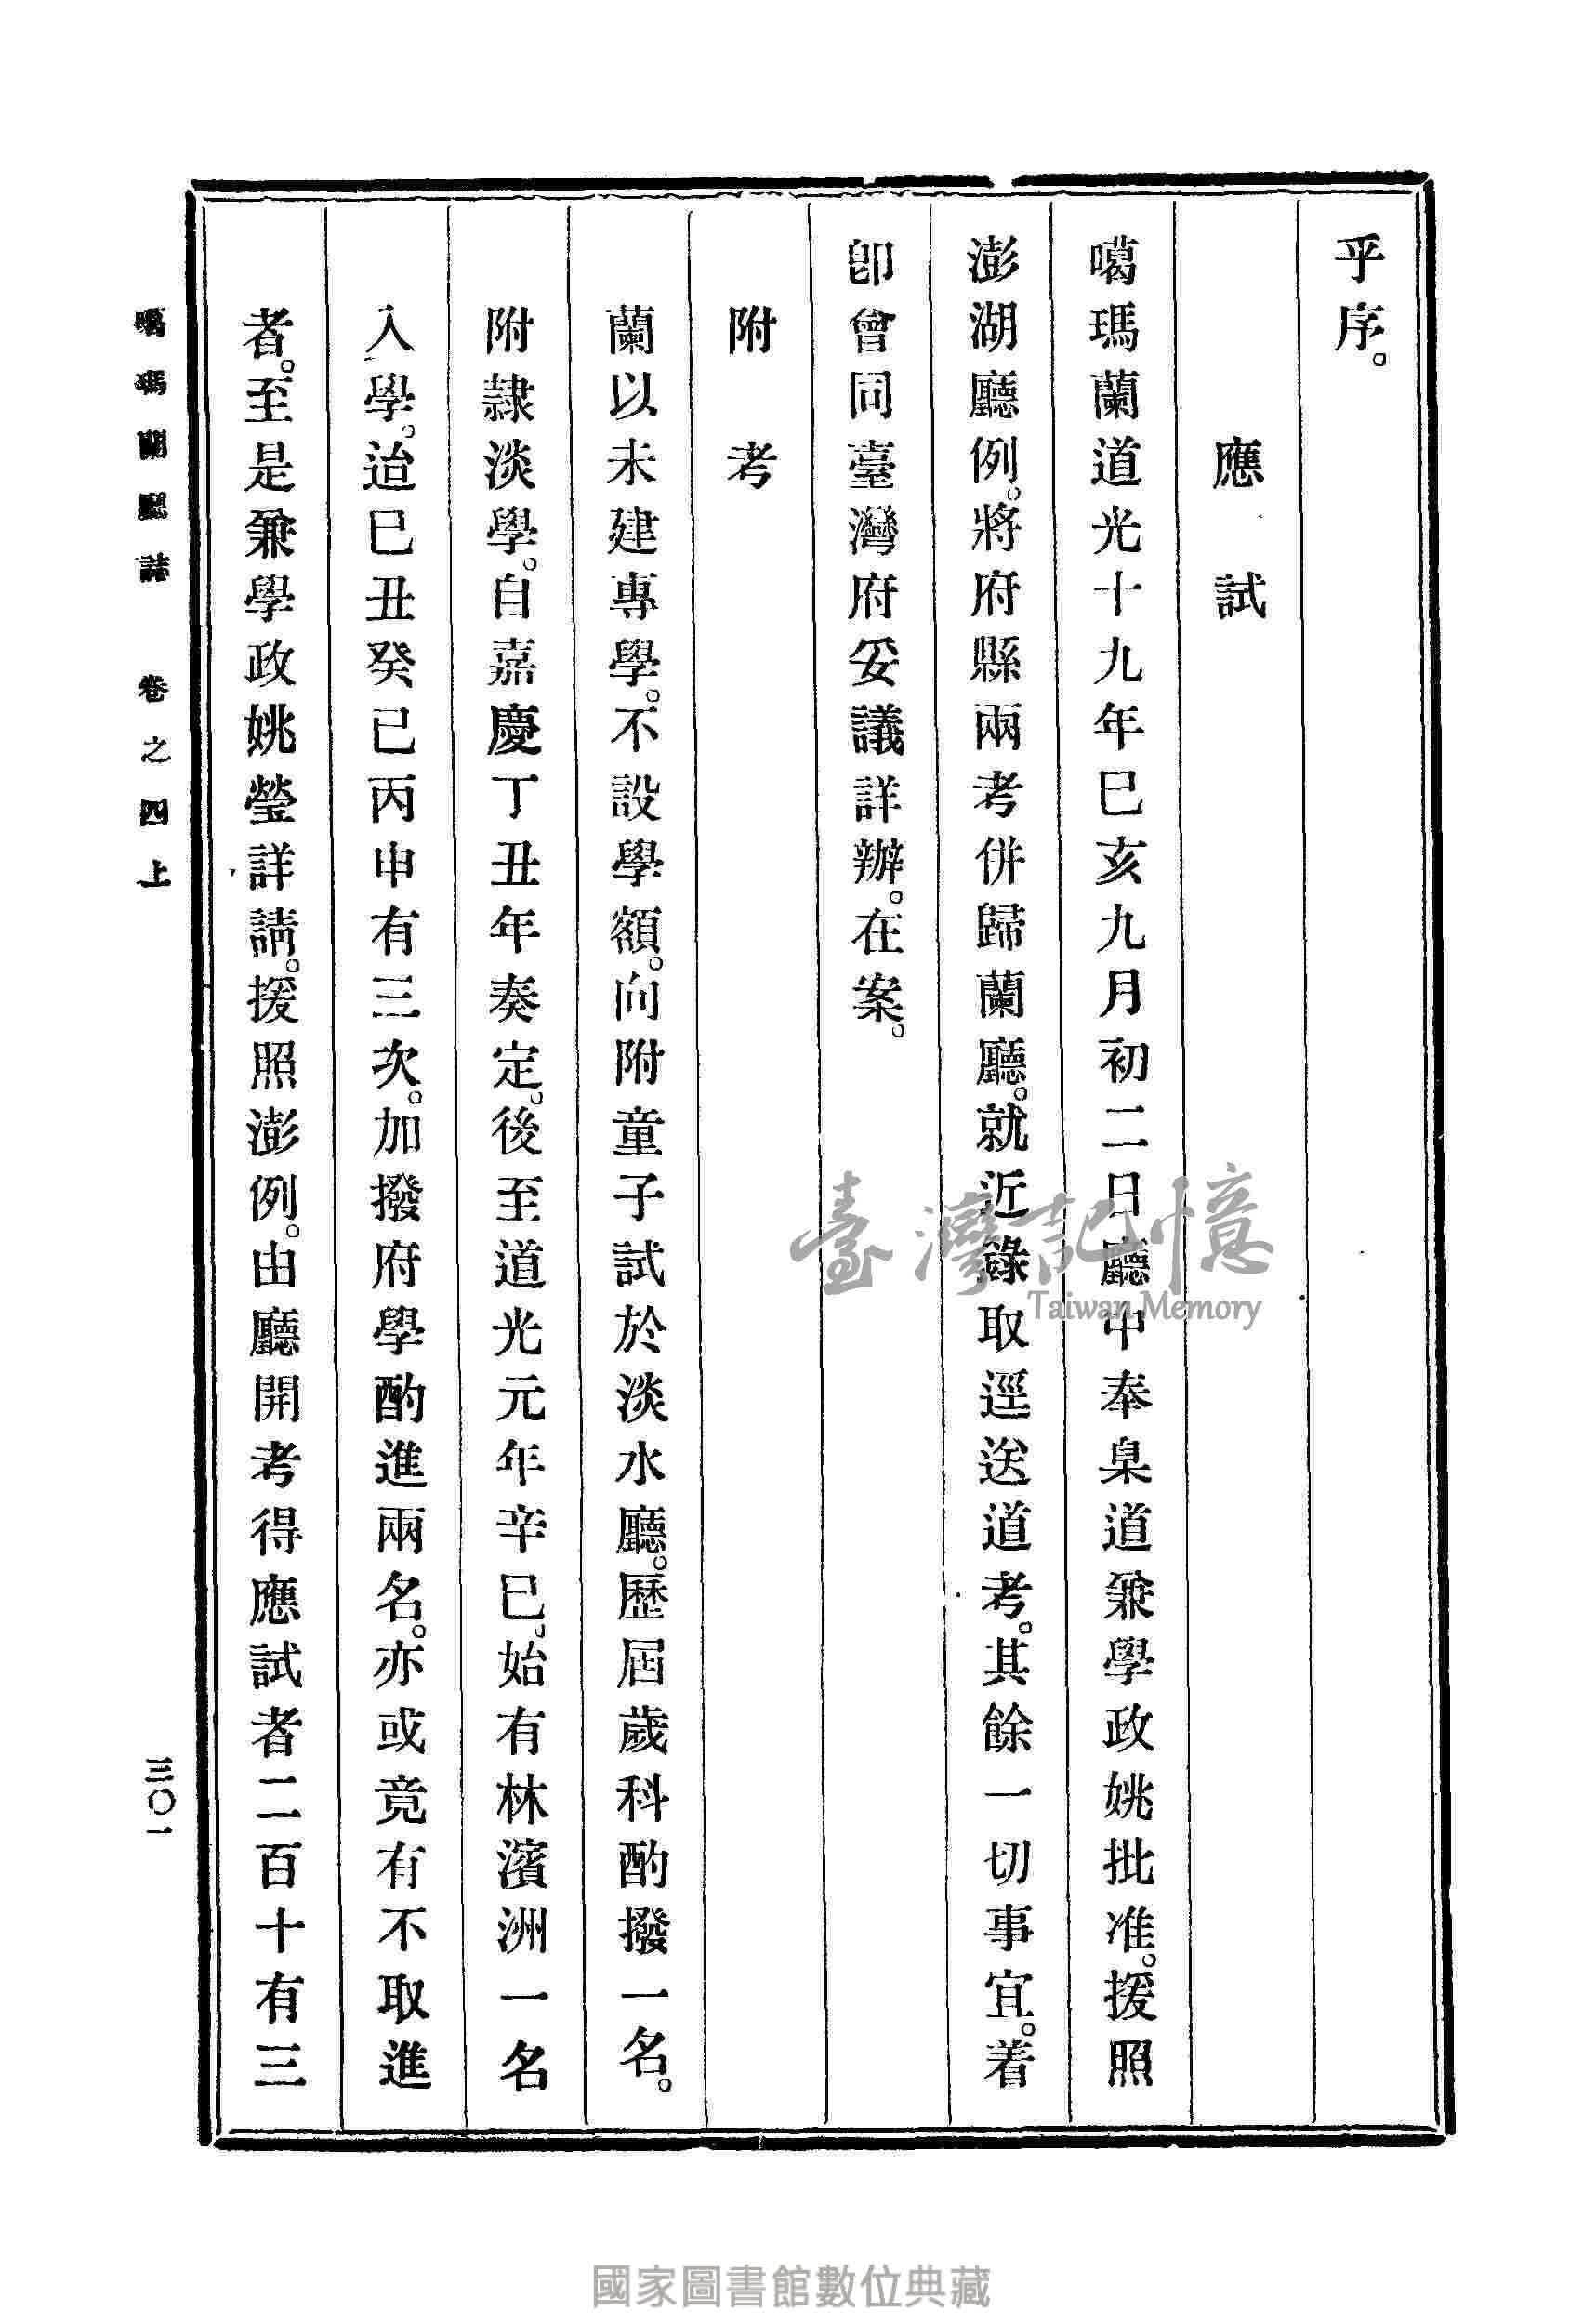 乎序。
應試
噶瑪蘭道光十九年巳亥九月初二日廳中奉臬道兼學政姚批准。援照
澎湖廳例。將府縣兩考併歸蘭廳。就近錄取逕送道考。其餘一切事宜。着
卽會同臺灣府妥議詳辦。在案。
附考
蘭以未建專學。不設學額。向附童子試於淡水廳。歷屆歲科酌撥一名。
附隷淡學。自嘉慶丁丑年奏定。後至道光元年辛巳。始有林濱洲一名
入學。迨巳丑癸巳丙申有三次。加撥府學酌進兩名。亦或竟有不取進
者。至是兼學政姚瑩詳請。援照澎例。由廳開考得應試者二百十有三
噶瑪蘭廳誌 卷之四上 三〇一
臺灣記憶
Taiwan Memory
國家圖書館數位典藏